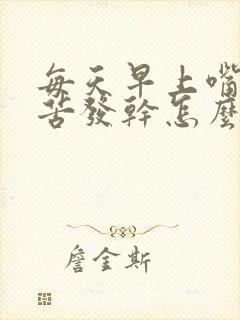 每天早上嘴
苦發幹怎麼
詹金斯